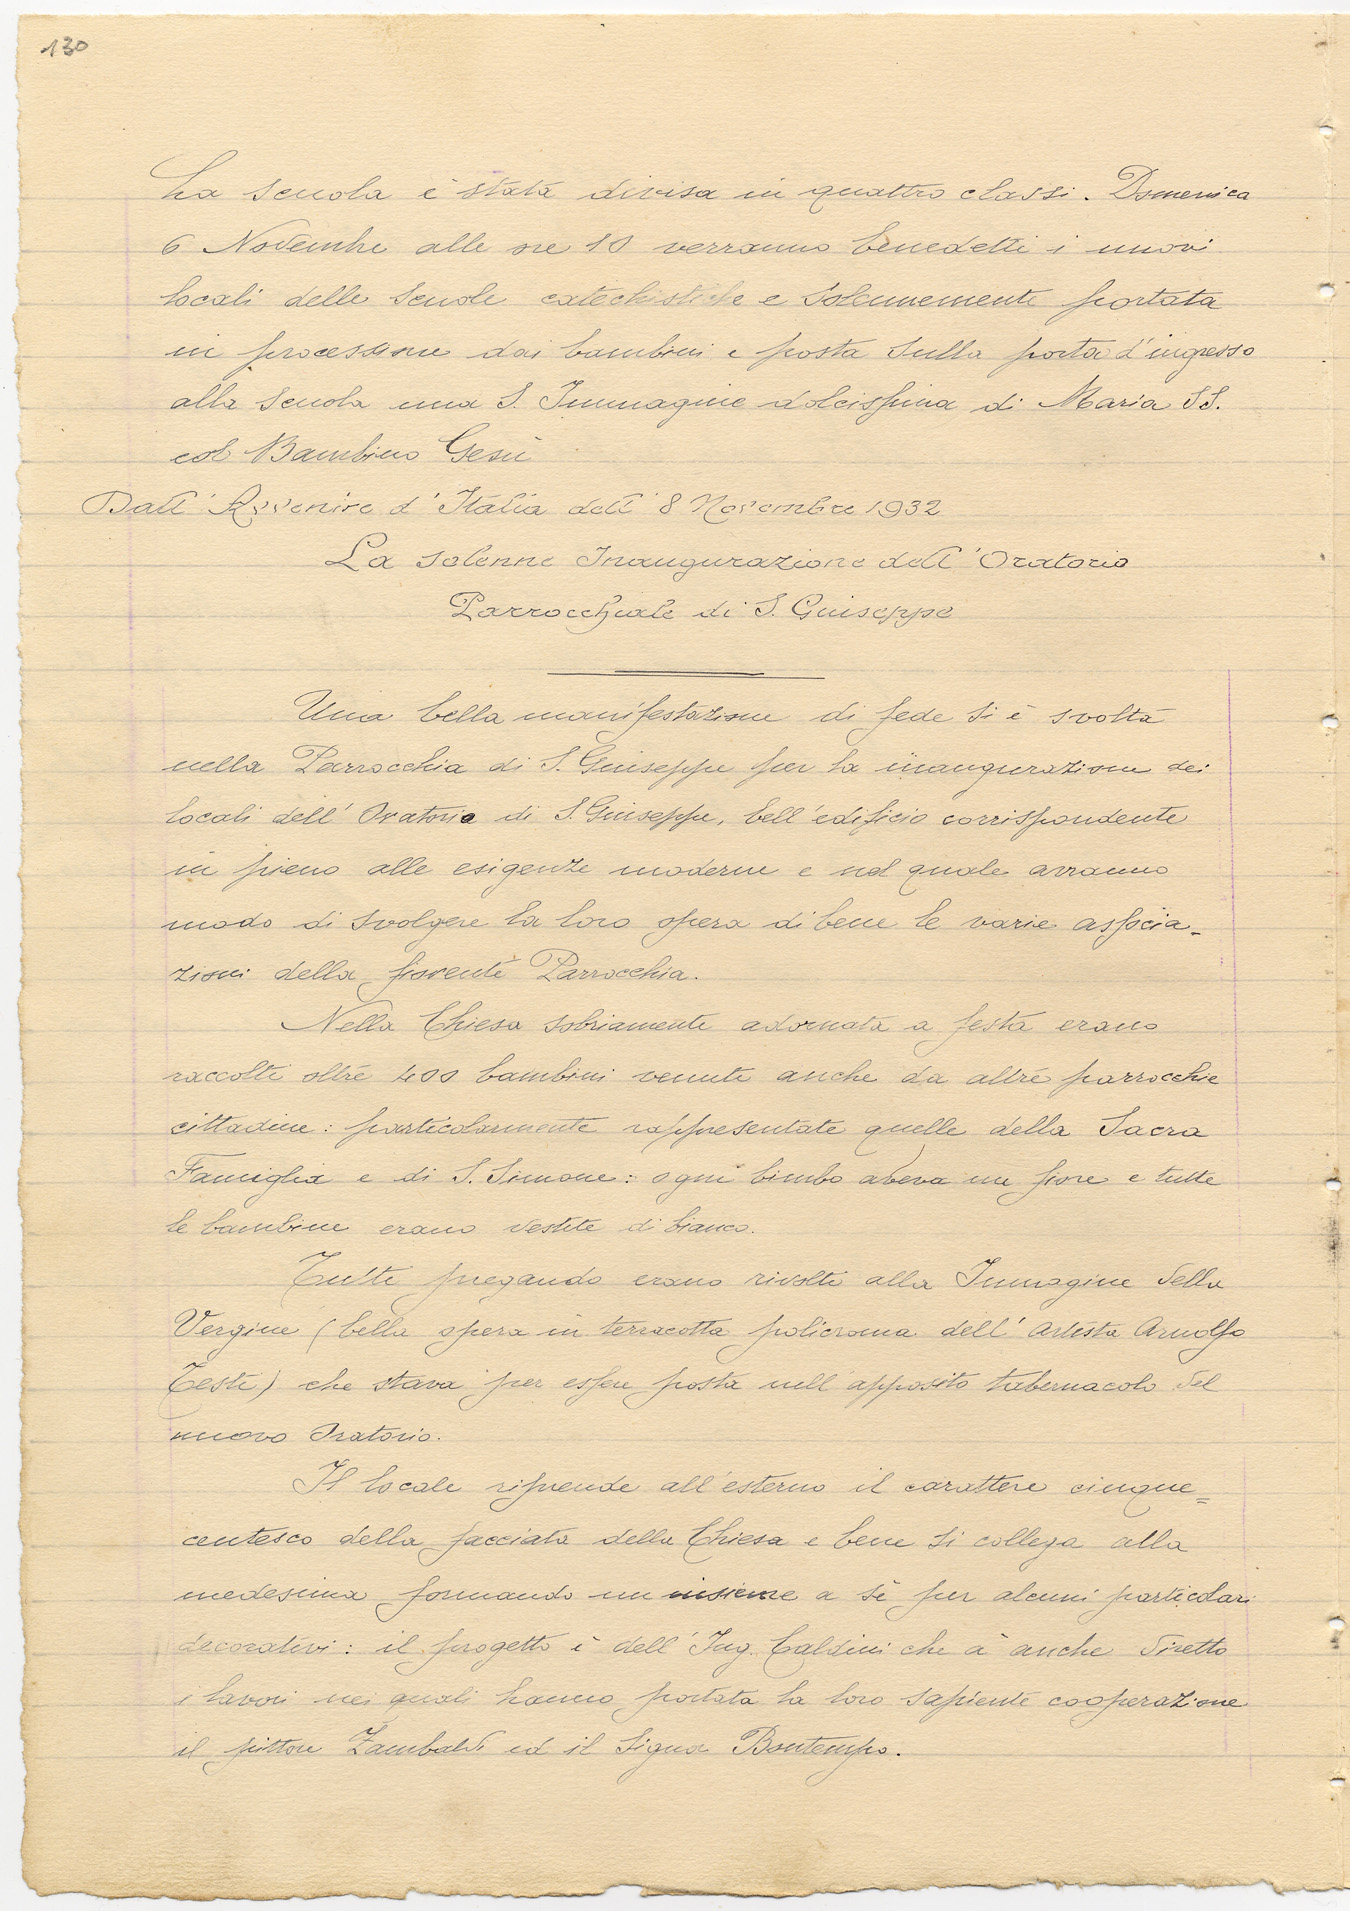 130
La scuola è stata divisa in quattro classi. Domenica
6 Novembre alle ore 10 verranno benedetti i nuovi
locali delle scuole catechistiche e solennemente portata
in processione dai bambini e posta sulla porta d'ingresso
alla scuola una S. Immagine dolcissima di Maria SS.
col Bambino Gesù
Dall'Avvenire d'Italia dell'8 Novembre 1932
La solenne Inaugurazione dell'Oratorio
Parrocchiale di S. Giuseppe
Una bella manifestazione di fede si è svolta
nella Parrocchia di S. Giuseppe per la inaugurazione dei
locali dell'Oratorio di S. Giuseppe, bell'edificio corrispondente
in pieno alle esigenze moderne e nel quale avranno
modo di svolgere la loro opera di bene le varie associa-
zioni della fiorente Parrocchia.
Nella Chiesa sobriamente adornata a festa erano
raccolti oltre 400 bambini venuti anche da altre parrocchie
cittadine: particolarmente rappresentate quelle della Sacra
Famiglia e di S. Simone: ogni bimbo aveva un fiore e tutte
le bambine erano vestite di bianco.
Tutti pregando erano rivolti alla Immagine della
Vergine (bella opera in terracotta policroma dell'Artista Arnolfo
Testi) che stava per essere posta nell'apposito tabernacolo del
nuovo Oratorio.
Il locale riprende all'esterno il carattere cinque=
centesco della facciata della Chiesa e bene si collega alla
medesima formando un insieme a sé per alcuni particolari
decorativi: il progetto è dell'Ing. Caldini che à anche diretto
i lavori nei quali hanno portata la loro sapiente cooperazione
il pittore Zambaldi ed il Signor Bontempo.